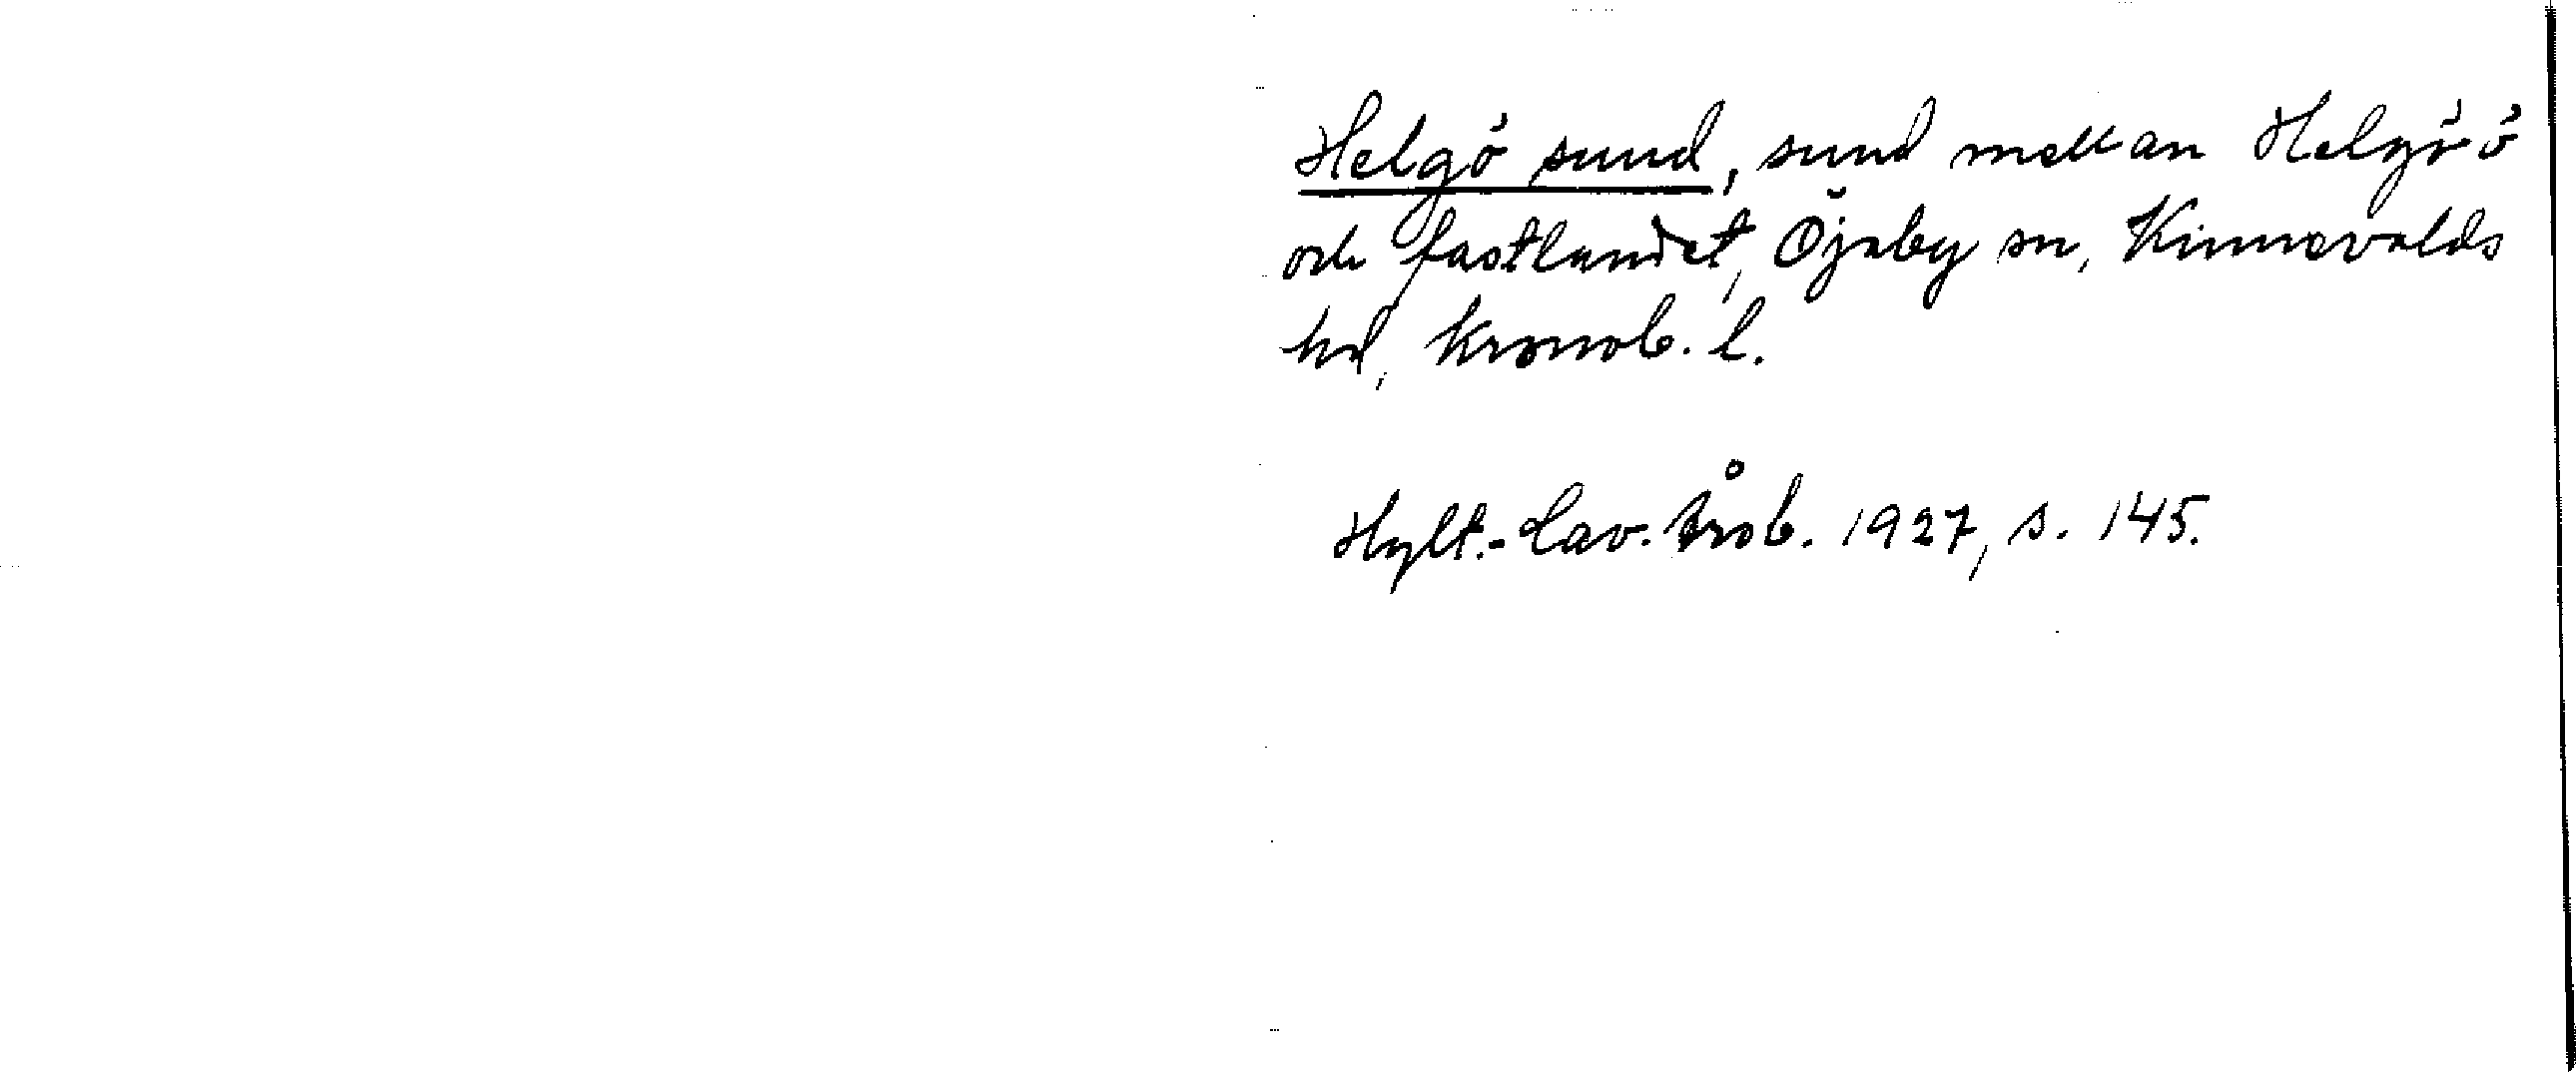 Helgö sund, sund mellan Helgö ö
och fastlandet, Öjaby sn, Kinnevalds
hd, Kronob. l.
Hylt.-Cav. Årsb. 1927, s. 145.